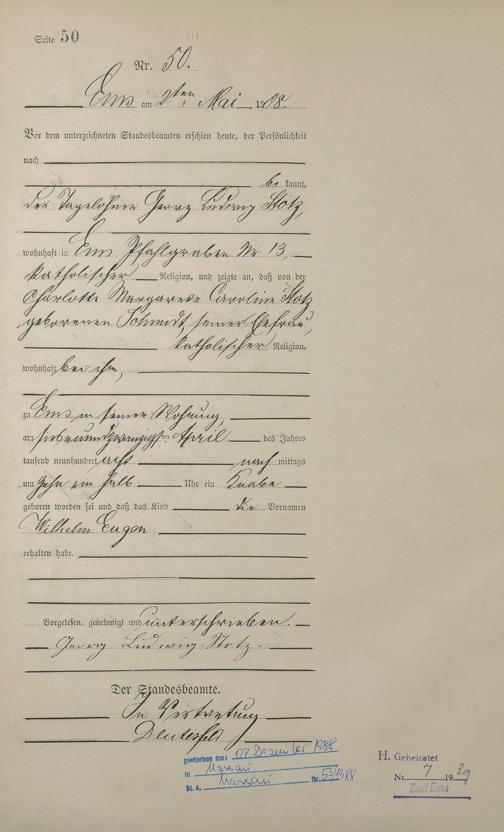 Seite 50
Nr. 50.
Ems am 2ten Mai 1908.
Vor dem unterzeichneten Standesbeamten erschien heute, der Persönlichkeit
nach
be kannt,
der Tagelöhner Georg Ludwig Stotz,
wohnhaft in Ems Pfahlgraben Nr. 13,
katholischer Religion, und zeigte an, daß von der
Charlotte Margarete Caroline Stotz
geborenen Schmidt, seiner Ehefrau,
katholischer Religion,
wohnhaft bei ihm,
zu Ems in seiner Wohnung,
am siebenundzwanzigsten April des Jahres
tausend neunhundert acht nach mittags
um zehn ein halb Uhr ein Knabe
geboren worden sei und daß das Kind die Vornamen
Wilhelm Eugen
erhalten habe.
Vorgelesen, genehmigt und unterschrieben.
Georg Ludwig Stotz.
Der Standesbeamte.
In Vertretung
gestorben am: 07 Dezember 1988
in Nassau
St. A. Nassau Nr. 53/1988
H. Geheiratet
Nr. 7 1939
Bad Ems